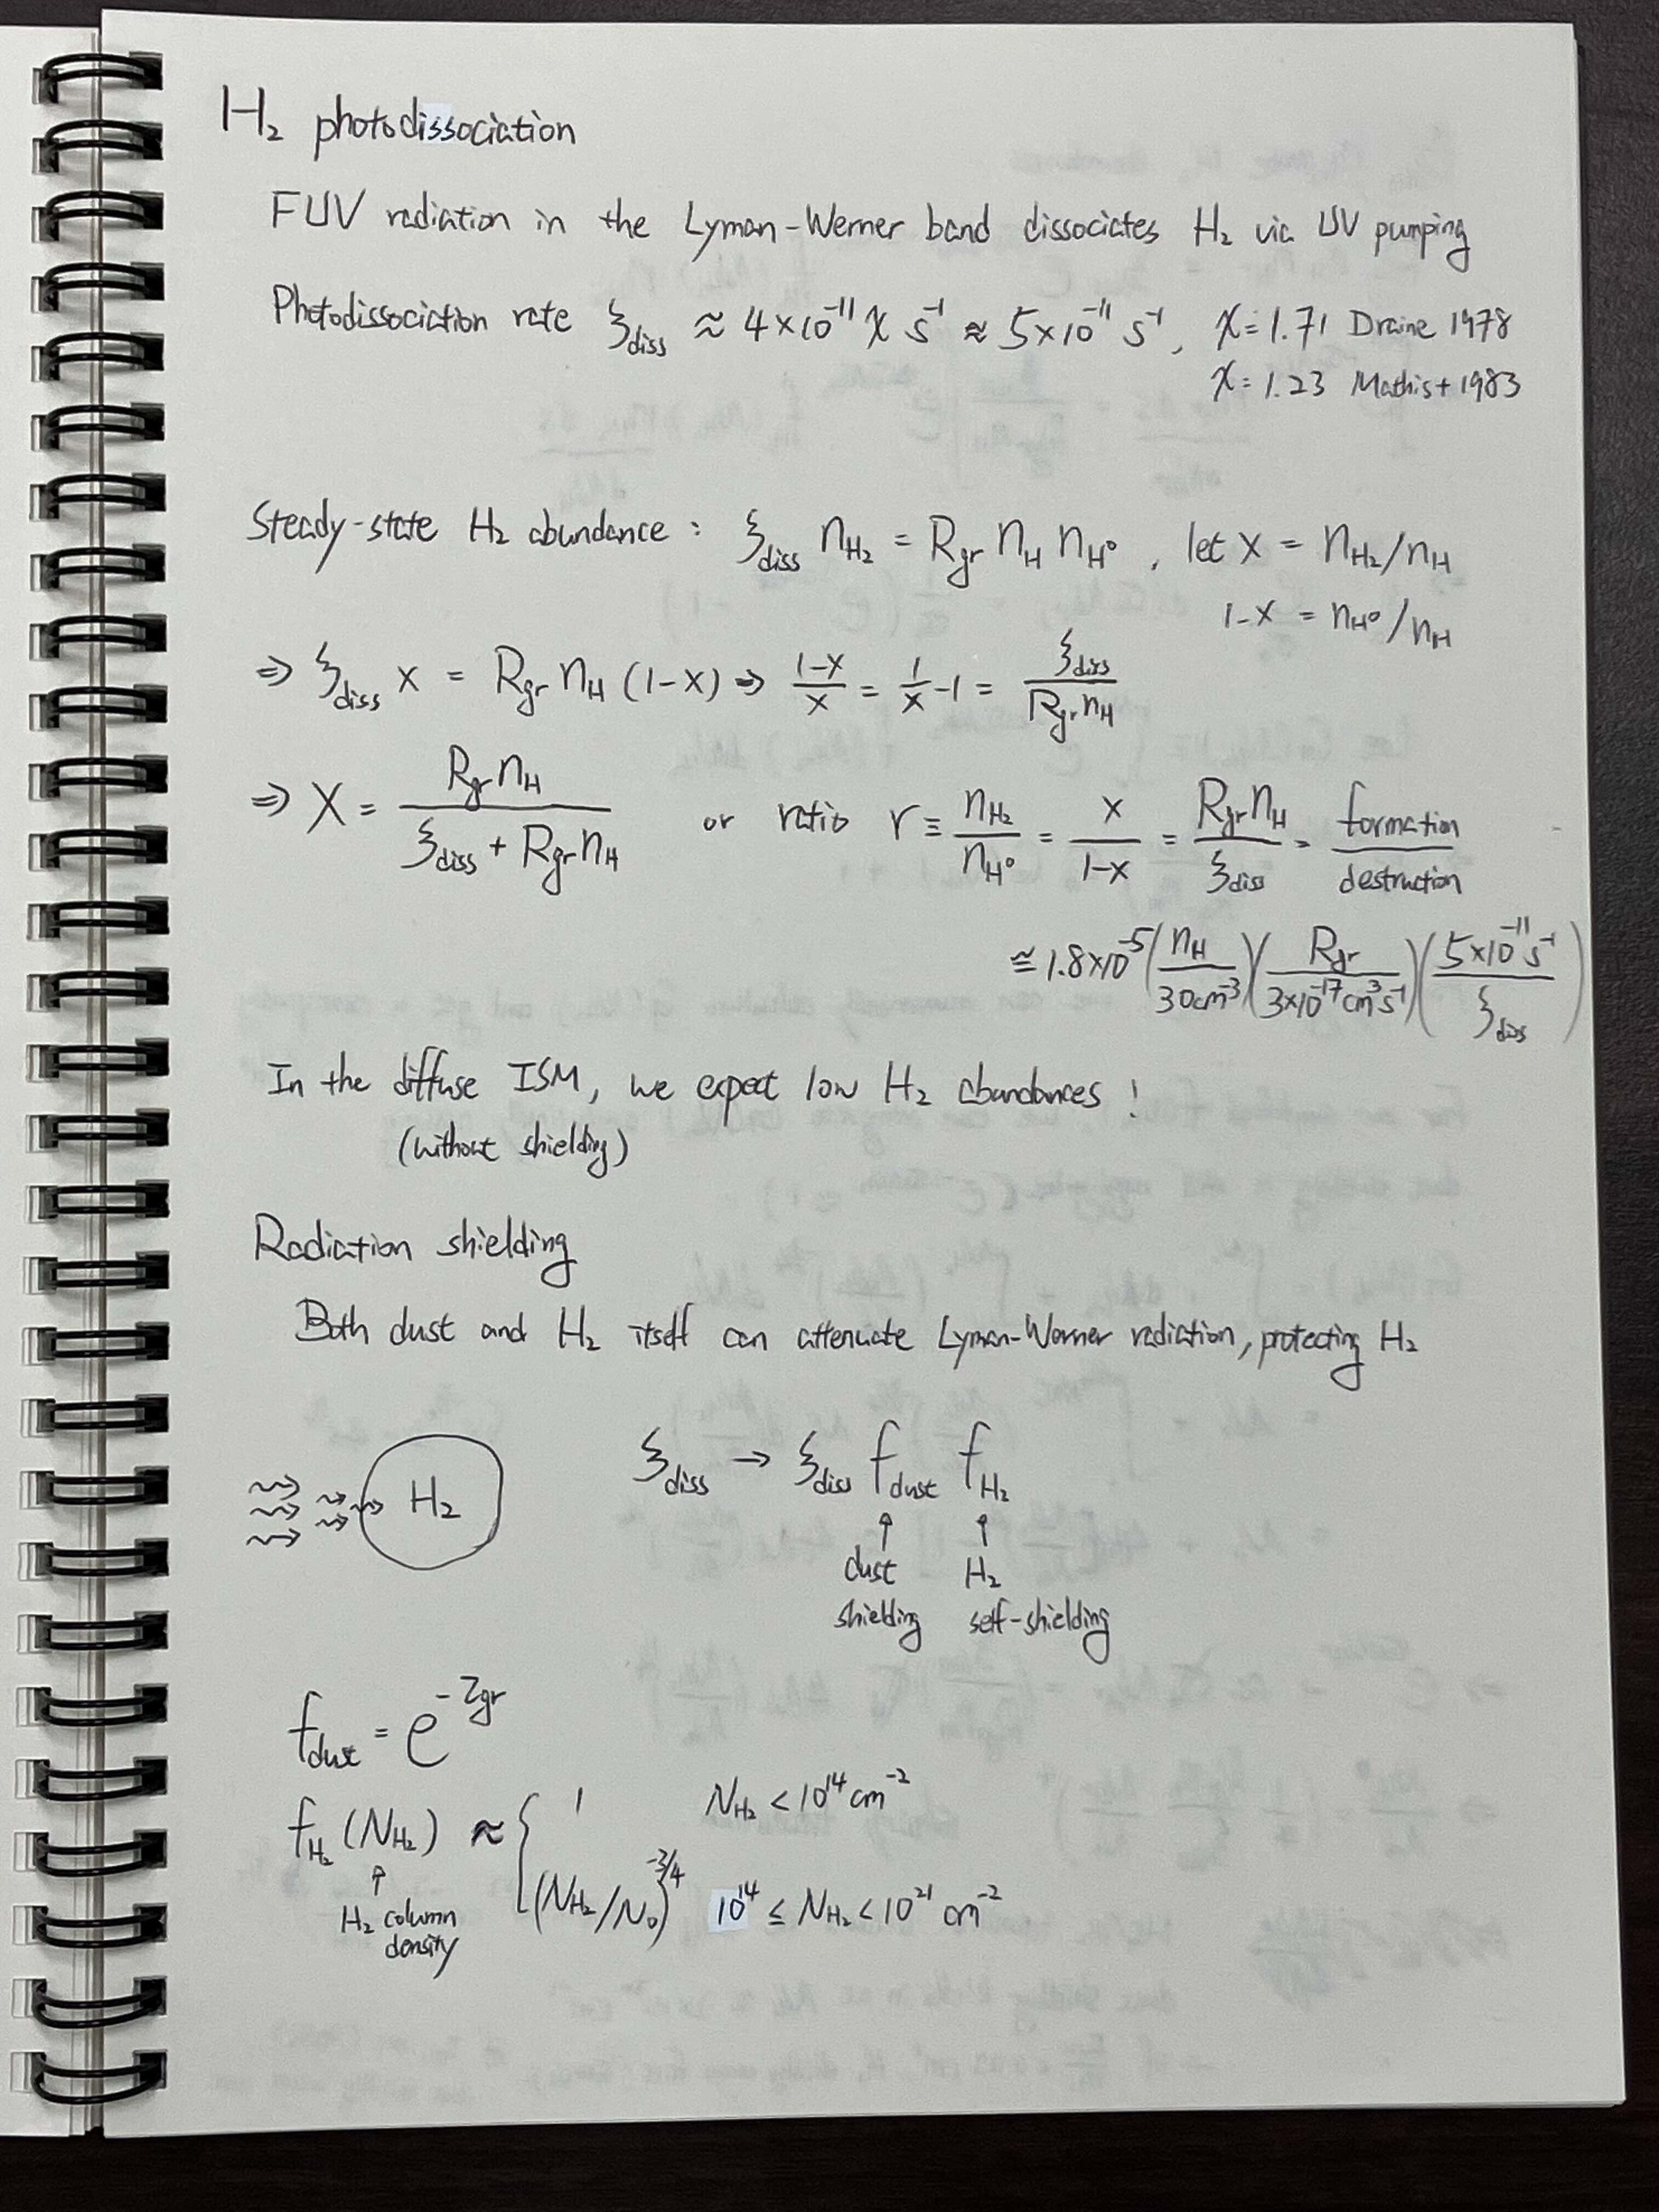 H₂ photodissociation
FUV radiation in the Lyman-Werner band dissociates H₂ via UV pumping
Photodissociation rate ξ_diss ≈ 4×10⁻¹¹ χ s⁻¹ ≈ 5×10⁻¹¹ s⁻¹, χ = 1.71 Draine 1978
χ = 1.23 Mathis+1983
Steady-state H₂ abundance : ξ_diss n_H₂ = R_gr n_H n_H⁰ , let x = n_H₂/n_H
1-x = n_H⁰/n_H
⇒ ξ_diss x = R_gr n_H (1-x) ⇒ (1-x)/x = 1/x - 1 = ξ_diss/(R_gr n_H)
⇒ x = R_gr n_H/(ξ_diss + R_gr n_H) or ratio r ≡ n_H₂/n_H⁰ = x/(1-x) = R_gr n_H/ξ_diss = formation/destruction
≅ 1.8×10⁻⁵ (n_H/30cm⁻³)(R_gr/3×10⁻¹⁷cm³s⁻¹)(5×10⁻¹¹s⁻¹/ξ_diss)
In the diffuse ISM, we expect low H₂ abundances !
(without shielding)
Radiation shielding
Both dust and H₂ itself can attenuate Lyman-Werner radiation, protecting H₂
H₂ ξ_diss → ξ_diss f_dust f_H₂
↑ ↑
dust H₂
shielding self-shielding
f_dust = e^(-τ_gr)
f_H₂(N_H₂) ≈ { 1 N_H₂ < 10¹⁴ cm⁻²
(N_H₂/N₀)^(-3/4) 10¹⁴ ≤ N_H₂ < 10²¹ cm⁻²
↑
H₂ column
density